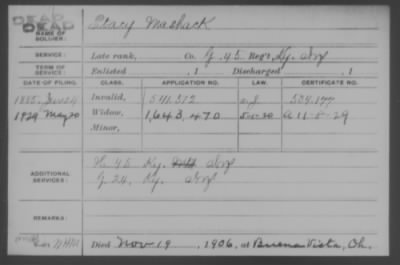 DEAD
DEAD
NAME OF SOLDIER: Stacy Mashack
SERVICE: Late rank, Co. G, 45 Reg't Ky. Inf
TERM OF SERVICE: Enlisted , 1 Discharged , 1
DATE OF FILING. CLASS. APPLICATION NO. LAW. CERTIFICATE NO.
1885, Invalid, 541,512
1929 May 20 Widow, 1,643,470 A 11-8-29
Minor,
ADDITIONAL SERVICES: H 45 Ky. Inf
G 24, Ky. Inf
REMARKS:
Died Nov 19, 1906, at Buena Vista, Oh.